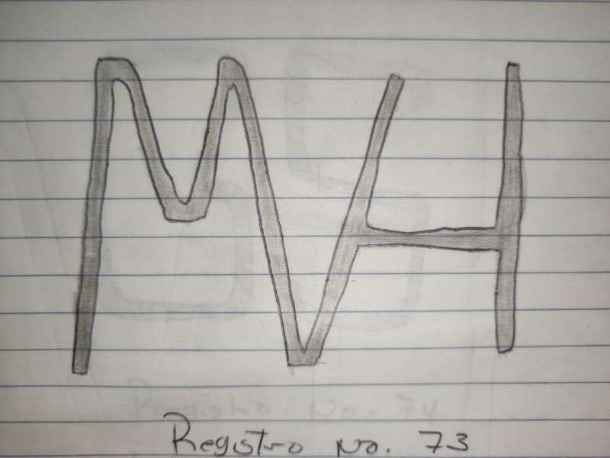 MVH
Registro No. 73